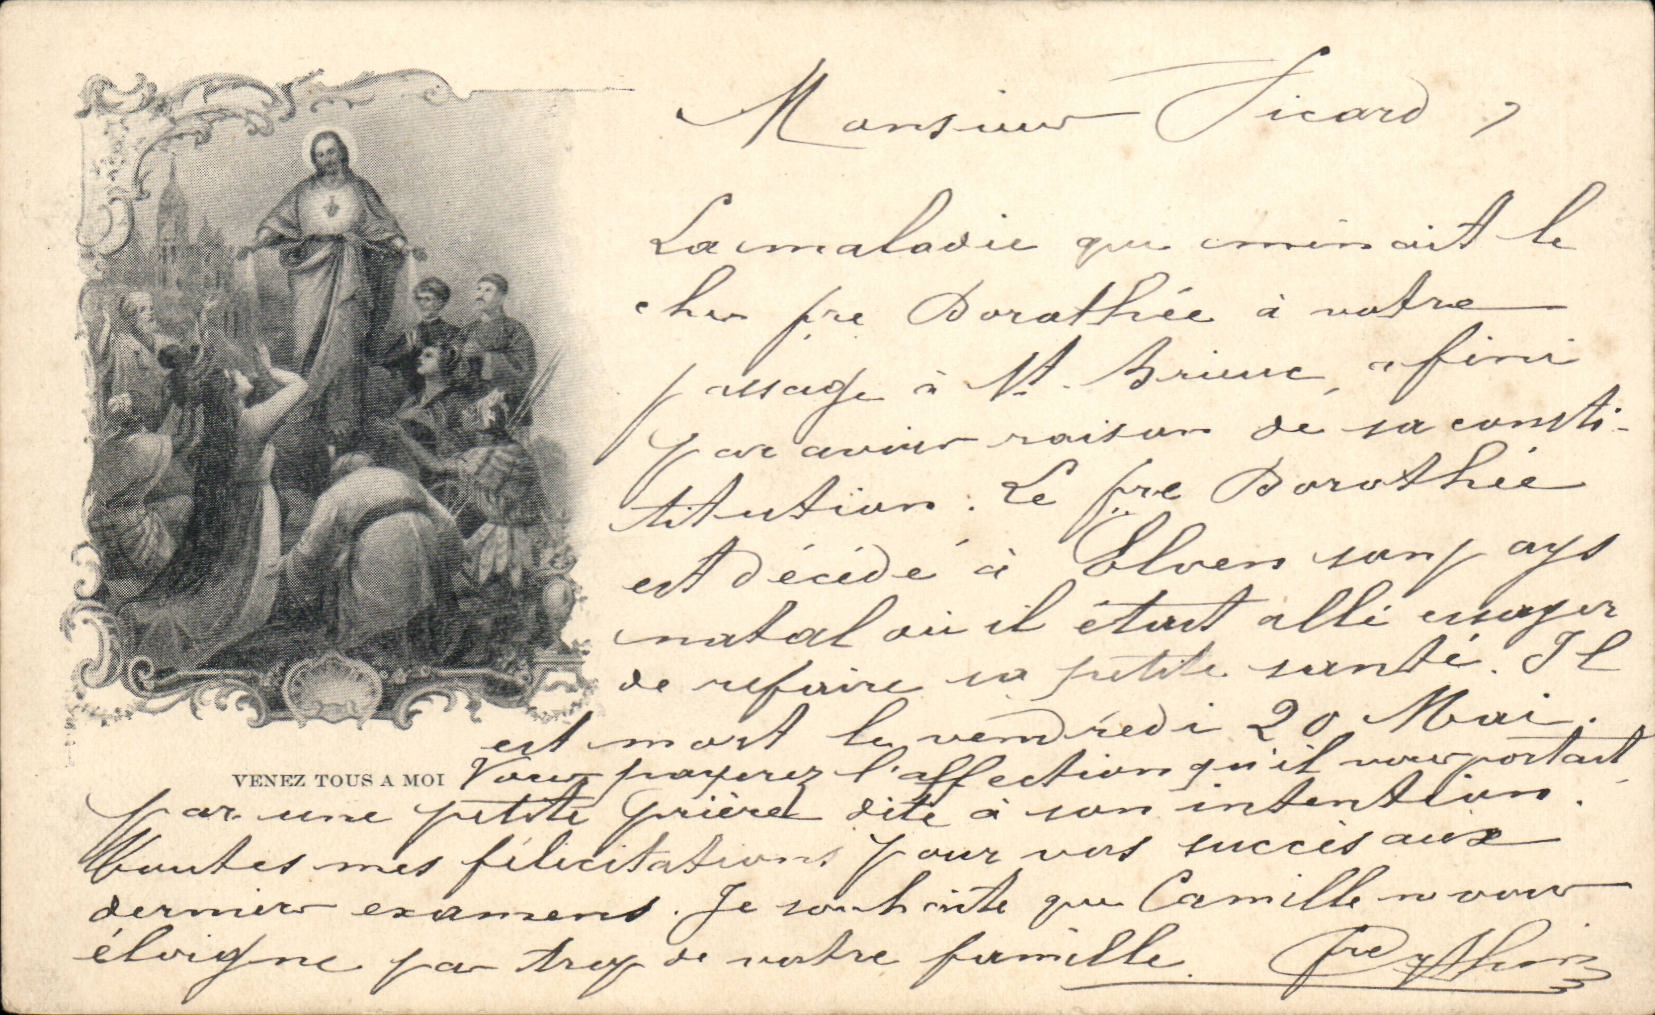 Monsieur Sicard,
La maladie qui minait le
cher fre Dorothée à votre
passage à St. Brieuc, a fini
par avoir raison de sa consti-
titution. Le fre Dorothée
est décédé à Elven son pays
natal où il était allé essayer
de refaire sa petite santé. Il
est mort le vendredi 20 Mai.
VENEZ TOUS A MOI
Vous payerez l'affection qu'il vous portait
par une petite prière dite à son intention.
Toutes mes félicitations pour vos succès aux
derniers examens. Je souhaite que Camille ne vous
éloigne pas trop de votre famille.
fre